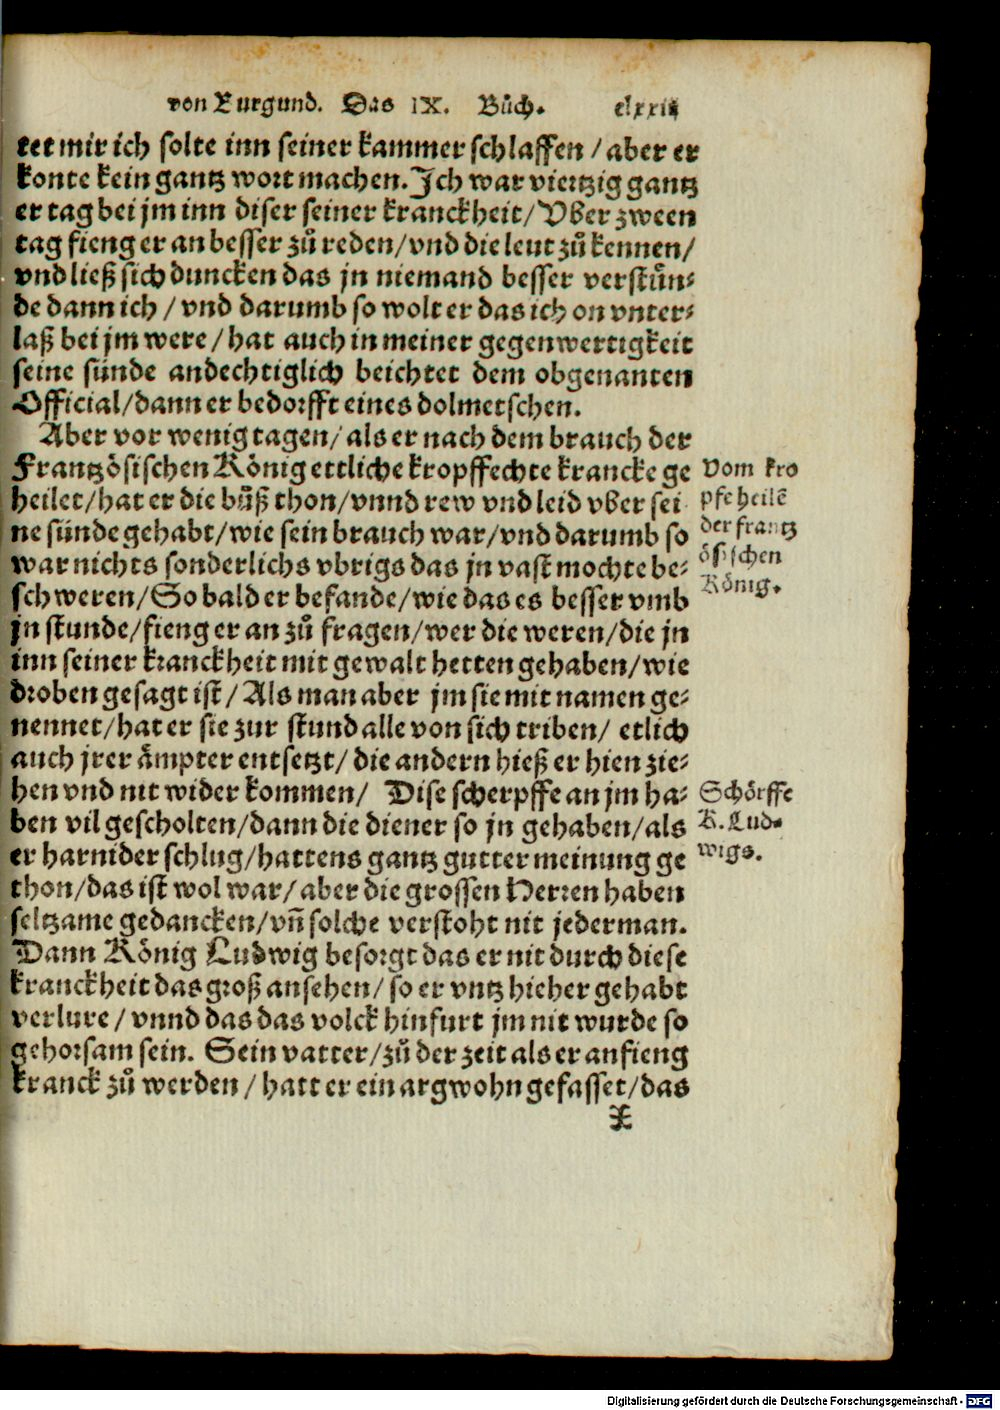 von Burgund. Das IX. Bůch. clxxii
tet mir ich solte inn seiner kammer schlaffen / aber er
konte kein gantz wort machen. Ich war viertzig gantz
er tag bei jm inn diser seiner kranckheit / Vber zween
tag fieng er an besser zů reden / vnd die leut zů kennen /
vnd ließ sich duncken das jn niemand besser verstůn⸗
de dann ich / vnd darumb so wolt er das ich on vnter⸗
laß bei jm were / hat auch in meiner gegenwertigkeit
seine sünde andechtiglich beichtet dem obgenanten
Official / dann er bedorfft eines dolmetschen.
Aber vor wenig tagen / als er nach dem brauch der
Frantzösischen König ettliche kropffechte krancke ge
heilet / hat er die bůß thon / vnnd rew vnd leid vber sei
ne sünde gehabt / wie sein brauch war / vnd darumb so
war nichts sonderlichs vbrigs das jn vast mochte be⸗
schweren / So bald er befande / wie das es besser vmb
jn stunde / fieng er an zů fragen / wer die weren / die jn
inn seiner kranckheit mit gewalt hetten gehaben / wie
droben gesagt ist / Als man aber jm sie mit namen ge⸗
nennet / hat er sie zur stund alle von sich triben / etlich
auch jrer ämpter entsetzt / die andern hieß er hien zie⸗
hen vnd nit wider kommen / Dise scherpffe an jm ha⸗
ben vil gescholten / dann die diener so jn gehaben / als
er harnider schlug / hattens gantz gutter meinung ge
thon / das ist wol war / aber die grossen Herren haben
seltzame gedancken / vñ solche verstoht nit jederman.
Dann König Ludwig besorgt das er nit durch diese
kranckheit das groß ansehen / so er vntz hieher gehabt
verlure / vnnd das das volck hinfurt jm nit wurde so
gehorsam sein. Sein vatter / zů der zeit als er anfieng
kranck zů werden / hatt er ein argwohn gefasset / das
X
Vom kro
pfe heilẽ
der frantz
ösischen
König.
Schörffe
K. Lud⸗
wigs.
Digitalisierung gefördert durch die Deutsche Forschungsgemeinschaft - DFG